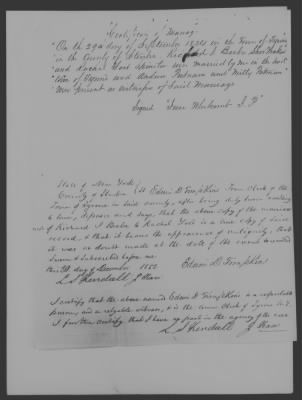 "Certificate of Marriage
"On the 29th day of September 1824 in the Town of Lyme
"in the County of                      Richard I. Becker Shoe Maker
"and Rachel               Spinster were married by me in the
"Town of Lyme and Andrew Putnam and Milly Putnam
"were present as witnesses of said marriage
Signed "                Whitmore J. P"
State of New York
County of                      Edwin D. Tompkins Town Clerk of the
Town of Lyme in said county, after being duly sworn according
to law, deposes and says, that the above copy of the marriage
of Richard I. Becker to Rachel                is a true copy of said
record, & that it bears the appearance of antiquity, that
it was no doubt made at the date of the event recorded
Sworn & Subscribed before me
this          day of December 18                Edwin D. Tompkins
L. S. Kendall J. Peace
I certify that the above named Edwin D. Tompkins is a respectable
person, and a reliable witness, & is the town Clerk of Lyme N. Y.
I further certify that I have no part in the agency of the case
L. S. Kendall J. Peace